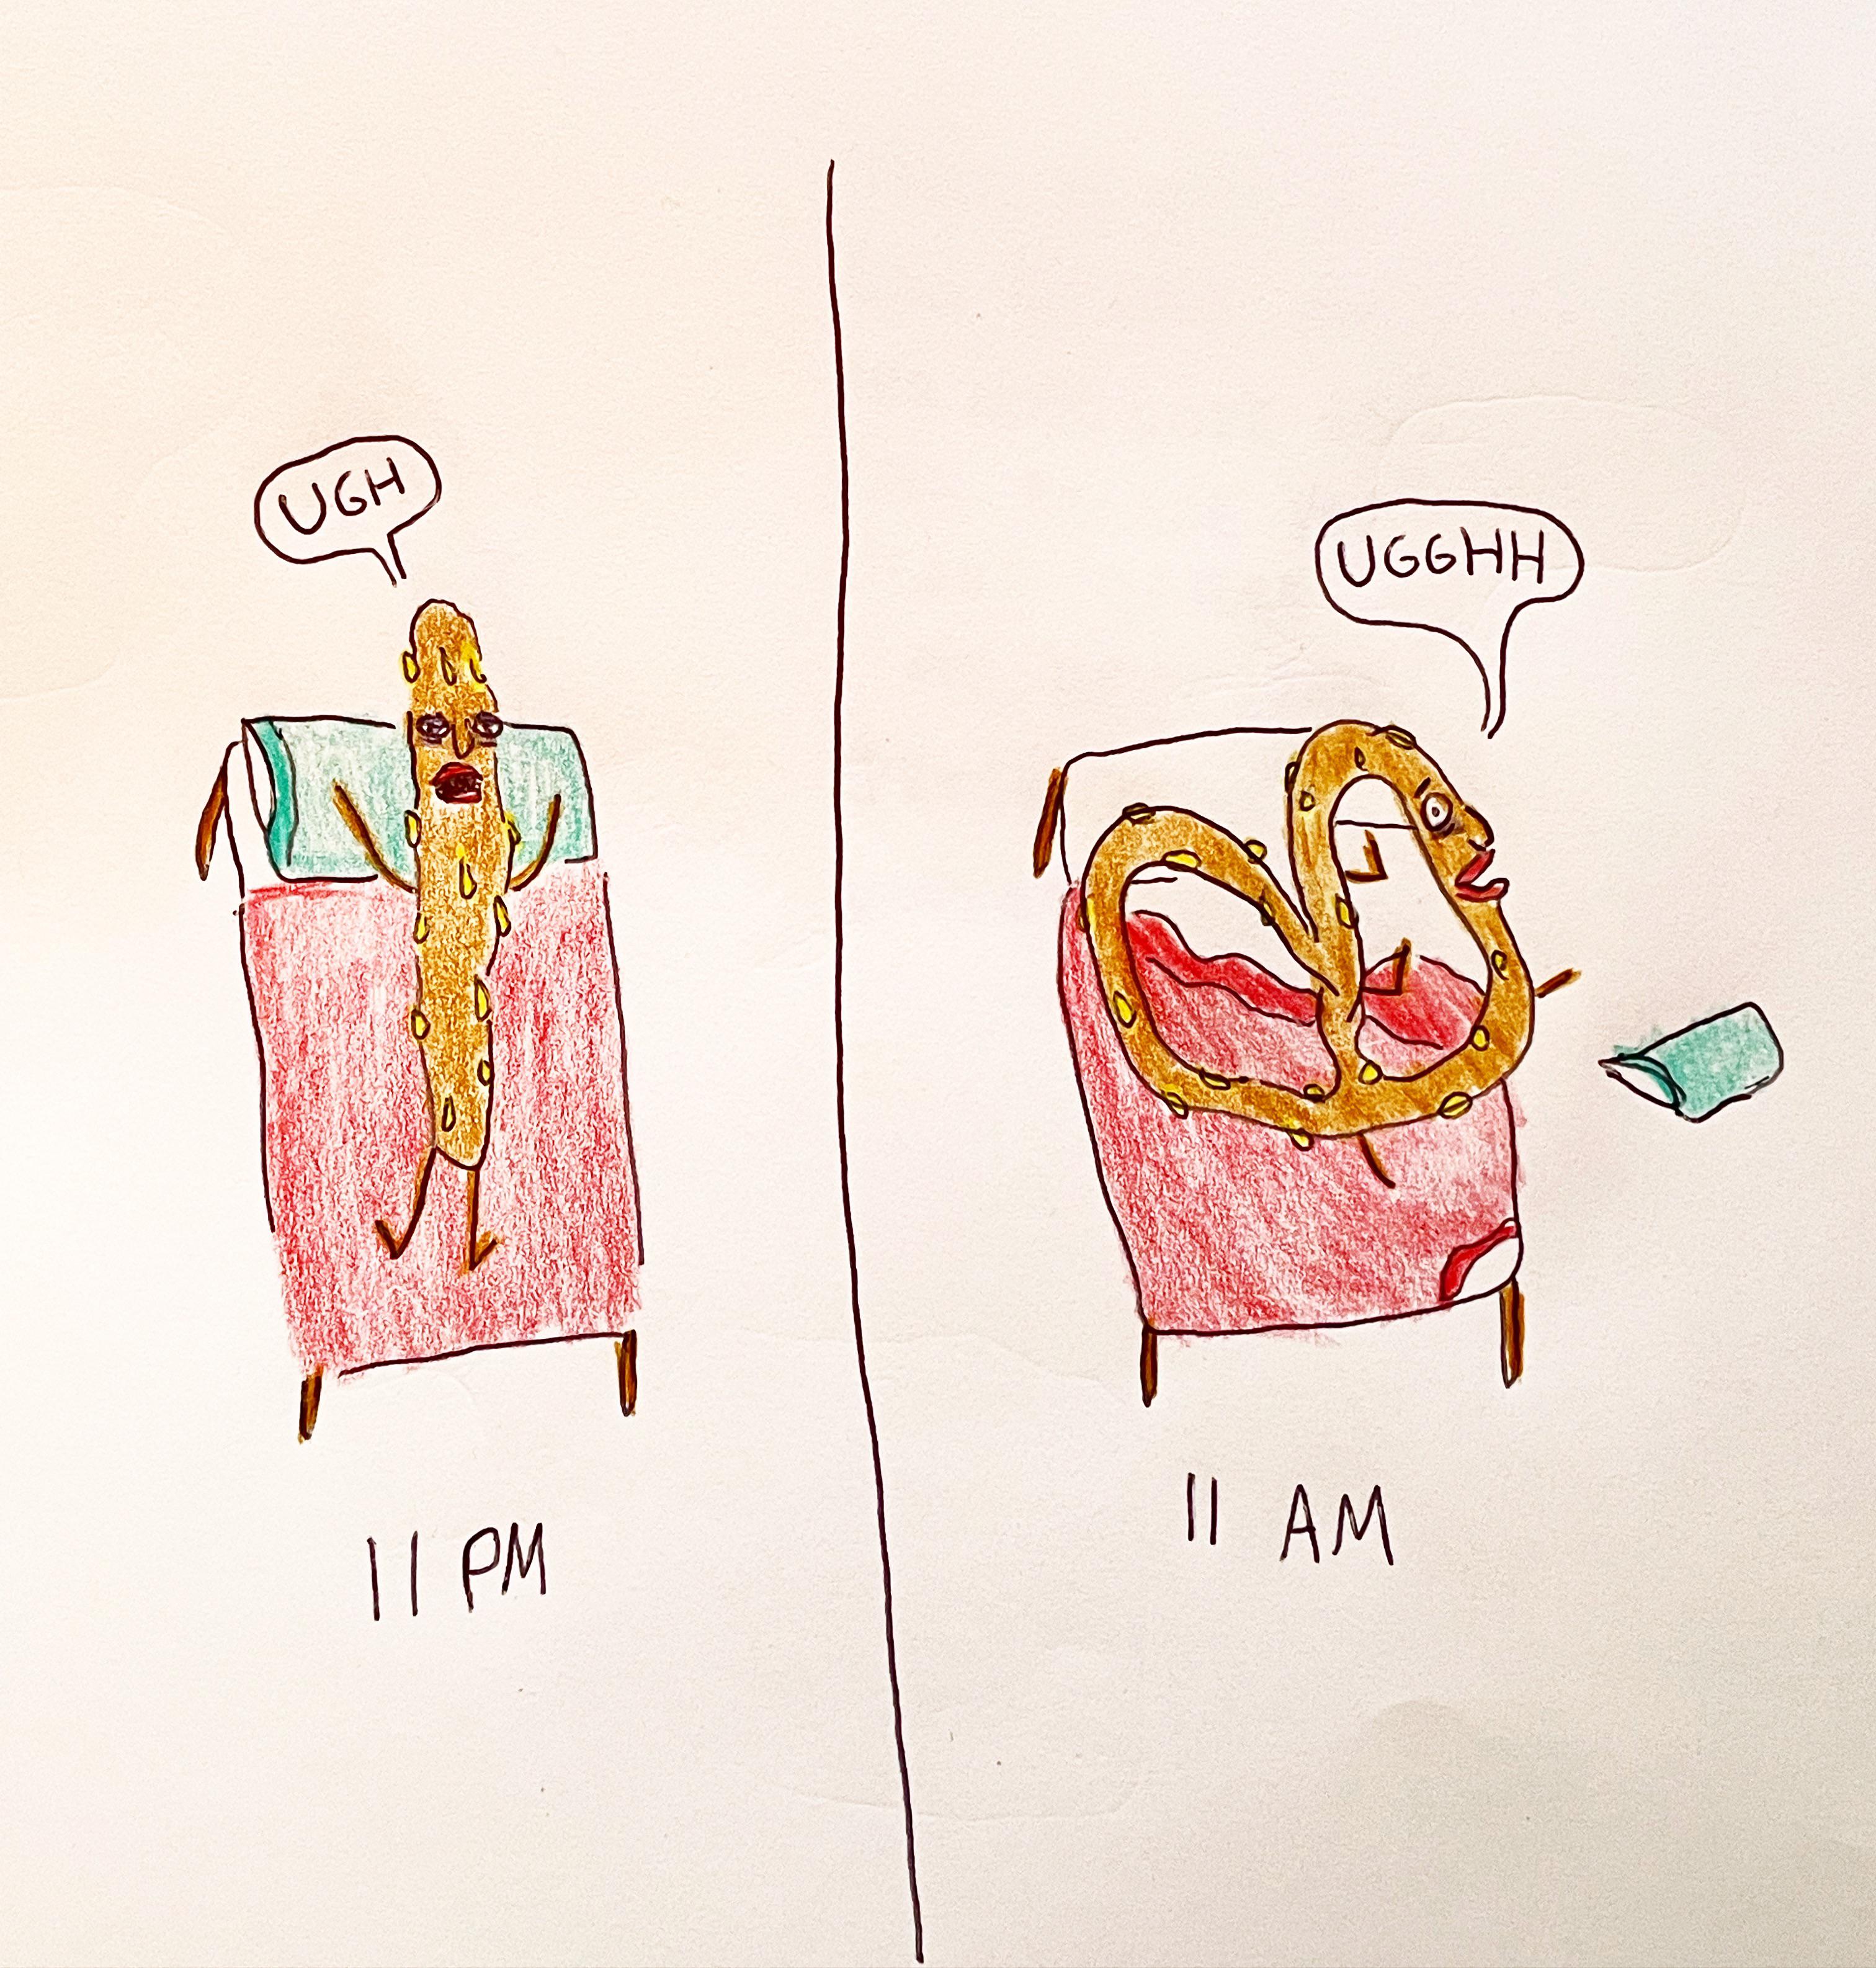 UGH
11 PM
UGGHH
11 AM